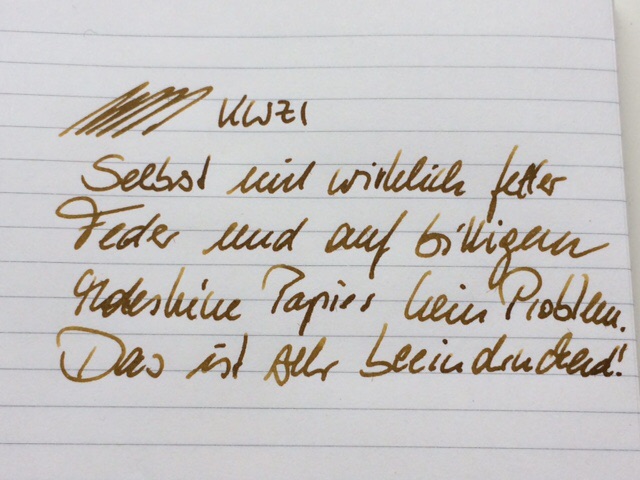 KWZI
Selbst mit wirklich fetter
Feder und auf billigem
Moleskine Papier kein Problem.
Das ist sehr beeindruckend!